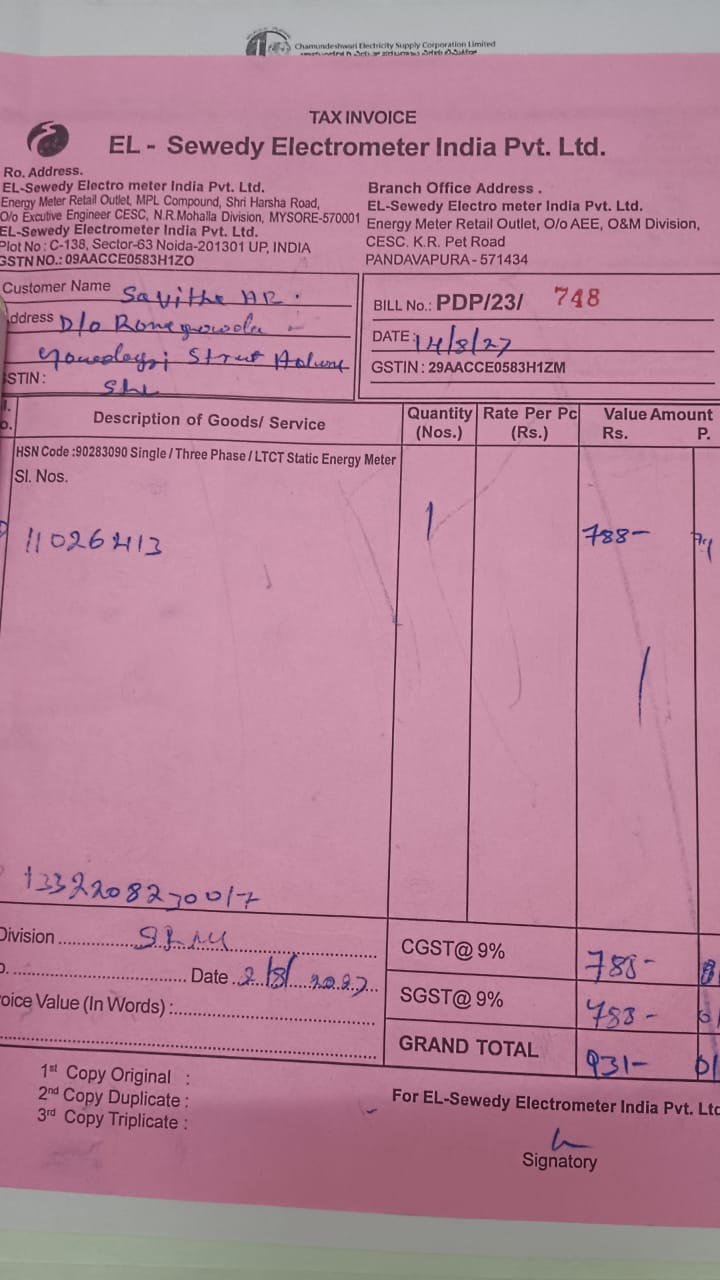 Chamundeshwari Electricity Supply Corporation Limited
TAX INVOICE
EL - Sewedy Electrometer India Pvt. Ltd.
Ro. Address.
EL-Sewedy Electro meter India Pvt. Ltd.
Energy Meter Retail Outlet, MPL Compound, Shri Harsha Road,
O/o Excutive Engineer CESC, N.R.Mohalla Division, MYSORE-570001
EL-Sewedy Electrometer India Pvt. Ltd.
Plot No : C-138, Sector-63 Noida-201301 UP, INDIA
GSTN NO.: 09AACCE0583H1ZO
Branch Office Address .
EL-Sewedy Electro meter India Pvt. Ltd.
Energy Meter Retail Outlet, O/o AEE, O&M Division,
CESC. K.R. Pet Road
PANDAVAPURA - 571434
Customer Name Savithe HR.
Address D/o
Street
GSTIN :
BILL No.: PDP/23/ 748
DATE: 14/8/27
GSTIN : 29AACCE0583H1ZM
Description of Goods/ Service
Quantity (Nos.)
Rate Per Pc (Rs.)
Value Amount
Rs. P.
HSN Code :90283090 Single / Three Phase / LTCT Static Energy Meter
Sl. Nos.
11026413 1 788-
Division
Date 2/8/2027
Invoice Value (In Words) :
CGST@ 9% 788-
SGST@ 9% 788- 01
GRAND TOTAL 931- 01
1st Copy Original :
2nd Copy Duplicate :
3rd Copy Triplicate :
For EL-Sewedy Electrometer India Pvt. Ltd
Signatory